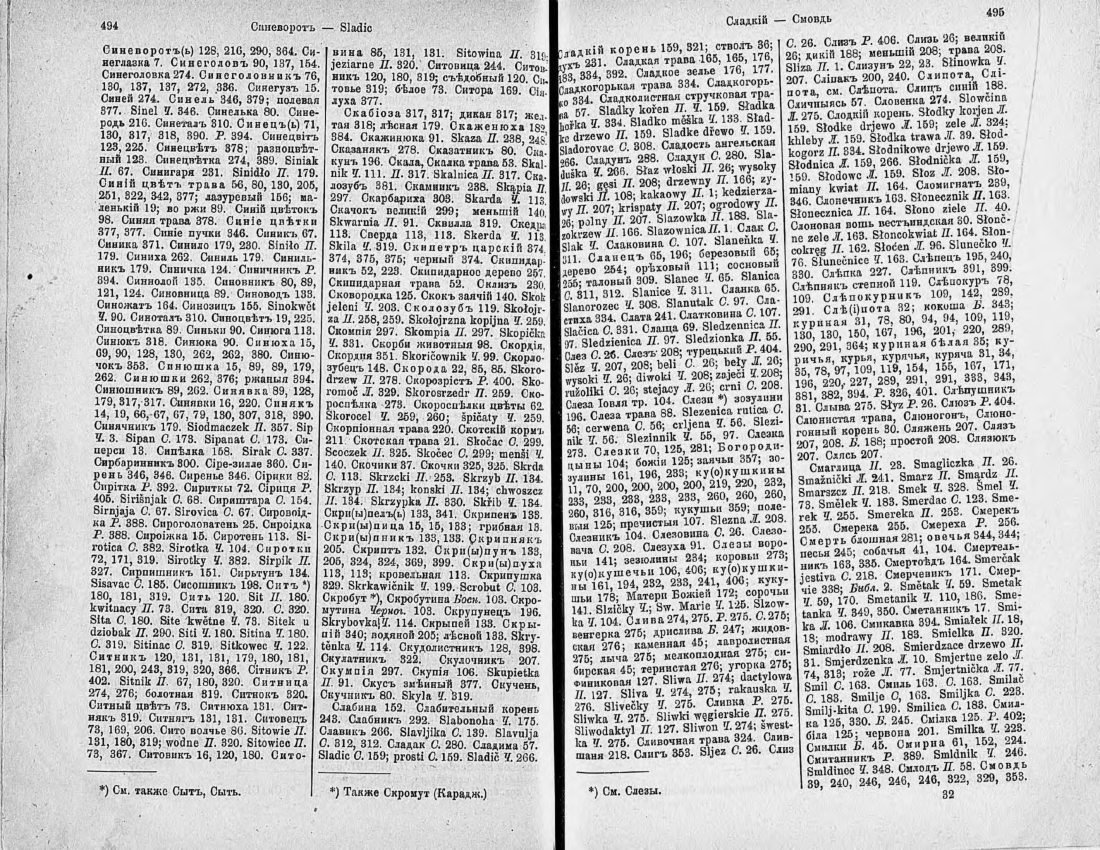 494
Синеворотъ — Sladic
Синеворотъ(ь) 128, 216, 290, 364. Си-
неглазка 7. Синеголовъ 90, 137, 154.
Синеголовка 274. Синеголовникъ 76,
130, 137, 137, 272, 336. Синегузъ 15.
Синей 274. Синель 346, 379; полевая
377. Sinel Ч. 346. Синелька 80. Сине-
родь 216. Синеталъ 310. Синецъ(ь) 71,
130, 317, 318, 390. Р. 394. Синецвітъ
123, 225. Синецвѣтъ 378; разноцвѣт-
ный 123. Синецвѣтка 274, 389. Siniak
П. 67. Синигаря 231. Sinidło П. 179.
Синій цвѣтъ трава 56, 80, 130, 205,
251, 322, 342, 377; лазуревый 156; ма-
ленькій 19; во ржи 89. Синій цвѣтокъ
98. Синяя трава 378. Синіе цвѣтки
377, 377. Синіе пучки 346. Синикъ 67.
Синика 371. Синило 179, 230. Siniło П.
179. Синиха 262. Синиль 179. Синиль-
никъ 179. Синичка 124. Синичникъ Р.
394. Синнолой 135. Синовникъ 80, 89,
121, 124. Синовница 89. Синоводъ 133.
Синожатъ 164. Синозицъ 155. Sinokwĕt
Ч. 90. Синоталъ 310. Синоцвѣтъ 19, 225.
Синоцвѣтка 89. Синьки 90. Синюга 113.
Синюкъ 318. Синюка 90. Синюха 15,
69, 90, 128, 130, 262, 262, 380. Синю-
чокъ 353. Синюшка 15, 89, 89, 179,
262. Синюшки 262, 376; ржаныя 394.
Синюшникъ 89, 262. Синявка 89, 128,
179, 317, 317. Синявки 16, 220. Синякъ
14, 19, 66,-67, 67, 79, 130, 307, 318, 390.
Синячникъ 179. Siodmaczek П. 357. Sip
Ч. 3. Sipan С. 173. Sipanat С. 173. Си-
перси 13. Сипѣлка 158. Sirak С. 337.
Сирбаринникъ 300. Сіре-зилле 360. Си-
рень 346, 346. Сиренье 346. Сірики 82.
Сирітка Р. 392. Сириткы 72. Сіриця Р.
405. Sirišnjak С. 68. Сириштара С. 154.
Sirnjaja С. 67. Sirovica С. 67. Сировоїд-
ка Р. 388. Сироголоватень 25. Сироідка
Р. 388. Сироіжка 15. Сиротень 113. Si-
rotica С. 382. Sirotka Ч. 104. Сиротки
72, 171, 319. Sirotky Ч. 382. Sirpik П.
327. Сирпишникъ 151. Сирьтунъ 134.
Sisavac С. 185. Сисошникъ 198. Ситъ *)
180, 181, 319. Сить 120. Sit П. 180.
kwitnacy П. 73. Сита 319, 320. С. 320.
Sita С. 180. Site kwětne Ч. 73. Sitek u
dziobak П. 290. Siti Ч. 180. Sitina Ч. 180.
С. 319. Sitinac С. 319. Sitkowec Ч. 122.
Ситникъ 120, 131, 131, 179, 180, 181,
181, 200, 243, 319, 320, 366. Ситник Р.
402. Sitnik П. 67, 180, 320. Ситница
274, 276; болотная 319. Ситнокъ 320.
Ситный цвѣтъ 73. Ситнюха 131. Сит-
някъ 319. Ситнягъ 131, 131. Ситовецъ
73, 169, 206. Сито волчье 86. Sitowie П.
131, 180, 319; wodne П. 320. Sitowiec П.
73, 367. Ситовикъ 16, 120, 180. Сито-
*) См. также Сытъ, Сыть.
вина 85, 131, 131. Sitowina П. 319;
jeziarne П. 320. Ситовица 244. Ситов-
никъ 120, 180, 319; съѣдобный 120. Си-
товье 319; бѣлое 73. Ситора 169. Сія-
луха 377.
Скабіоза 317, 317; дикая 317; жел-
тая 318; лѣсная 179. Скаженюха 182,
384. Скажинюка 91. Skaza П. 238, 248.
Сказанякъ 278. Сказатникъ 80. Ска-
кунъ 196. Скала, Скалка трава 53. Skal-
nik Ч. 111. П. 317. Skalnica П. 317. Ска-
лозубъ 381. Скамникъ 238. Skapia П.
297. Скарбариха 303. Skarda Ч. 113.
Скачокъ великій 299; меньшій 140.
Skwarnia П. 91. Сквилла 319. Скедра
113. Сверда 113, 113. Skerda Ч. 113.
Skila Ч. 319. Скипетръ царскій 374,
374, 375, 375; черный 374. Скипидар-
никъ 52, 223. Скипидарное дерево 257.
Скипидарная трава 52. Склизъ 230.
Сковородка 125. Скокъ заячій 140. Skok
jeleni Ч. 203. Сколозубъ 119. Skołojr-
za П. 258, 259. Skołojrzna kopijna Ч. 259.
Скомпія 297. Skompia П. 297. Skopička
Ч. 331. Скорби животныя 98. Скордія,
Скордия 351. Skoričownik Ч. 99. Скорло-
зубець 148. Скорода 22, 85, 85. Skoro-
drzew П. 278. Скорозріст Р. 400. Sko-
romoč Л. 329. Skorosrzedr П. 259. Ско-
роспѣлка 273. Скороспѣлки цвѣты 62.
Skorocel Ч. 259, 260; špičaty Ч. 259.
Скорпіонная трава 220. Скотскій кормъ
211. Скотская трава 21. Skočac С. 299.
Scoczek П. 325. Skočec С. 299; menši Ч.
140. Скочики 37. Скочки 325, 325. Skrda
С. 113. Skrzcki П. 253. Skrzyb П. 134.
Skrzyp П. 134; konski П. 134; chwoszcz
П. 134. Skrzypka П. 330. Skřib Ч. 134.
Скри(ы)пелъ(ь) 133, 341. Скрипень 133.
Скри(ы)пица 15, 15, 133; грибная 13.
Скри(ы)пникъ 133, 133. Скрипнякъ
205. Скриптъ 132. Скри(ы)пунъ 133,
205, 324, 324, 369, 399. Скри(ы)пуха
113, 113; кровельная 113. Скрипушка
329. Skrkawičnik Ч. 199. Scrobut С. 103.
Скробут *), Скробутина Босн. 103. Скро-
мутина Черног. 103. Скрупунецъ 196.
Skrybovka Ч. 114. Скрыпей 133. Скры-
пій 340; водяной 205; лѣсной 133. Skry-
těnka Ч. 114. Скудолистникъ 128, 398.
Скулатникъ 322. Скулочникъ 207.
Скумпія 297. Скупія 106. Skupietka
П. 91. Скусъ змѣиный 377. Скучень,
Скучникъ 80. Skyla Ч. 319.
Слабина 152. Слабительный корень
243. Слабникъ 292. Slabonoha Ч. 175.
Славикъ 266. Slavljika С. 139. Slavulja
С. 312, 312. Сладак С. 280. Сладима 57.
Sladic С. 159; prosti С. 159. Sladič Ч. 266.
*) Также Скромут (Карадж.)
Сладкій — Смовдь
495
Сладкій корень 159, 321; стволъ 36;
духъ 231. Сладкая трава 165, 165, 176,
183, 334, 392. Сладкое зелье 176, 177.
Сладкогорькая трава 334. Сладкогорь-
ко 334. Сладколистная стручковая тра-
ва 57. Sladky kořen П. Ч. 159. Sładka
hořka Ч. 334. Sladko měška Ч. 133. Slad-
ke drzewo П. 159. Sladke dřewo Ч. 159.
Sladorovac С. 308. Сладость ангельская
266. Сладунъ 288. Сладун С. 280. Sla-
duška Ч. 266. Słaz włoski П. 26; wysoky
П. 26; gęsi П. 208; drzewny П. 166; zy-
dowski П. 108; kakaowy П. 1; kedzierza-
wy П. 207; krispaty П. 207; ogrodowy П.
26; polny П. 207. Slazowka П. 188. Sla-
gokrzew П. 166. Slazownica П. 1. Слак С.
Slak Ч. Слаковина С. 107. Slaneňka Ч.
311. Сланецъ 65, 196; березовый 65;
дерево 254; орѣховый 111; сосновый
255; таловый 309. Slanec Ч. 65. Slanica
С. 311, 312. Slanice Ч. 311. Сланка 65.
Slanorozec Ч. 308. Slanutak С. 97. Сла-
стиха 334. Слата 241. Слатковина С. 107.
Slačica С. 331. Слаща 69. Sledzennica П.
97. Sledzienica П. 97. Sledzionka П. 55.
Слез С. 26. Слезъ 208; турецкый Р. 404.
Slěz Ч. 207, 208; beli С. 26; beły Л. 26;
wysoki Ч. 26; diwoki Ч. 208; zaječi Ч. 208;
ružoliki С. 26; stejacy Л. 26; crni С. 208.
Слеза Іовля тр. 104. Слези *) зозулини
196. Слеза трава 88. Slezenica rutica С.
56; cerwena С. 56; crljena Ч. 56. Slezi-
nik Ч. 56. Slezinnik Ч. 55, 97. Слезка
273. Слезки 70, 125, 281; Богороди-
цыны 104; божіи 125; заячьи 357; зо-
зулины 161, 196, 233; ку(о)кушкины
11, 70, 200, 200, 200, 200, 219, 220, 232,
233, 233, 233, 233, 233, 260, 260, 260,
260, 316, 316, 359; кукушьи 359; поле-
выя 125; пречистыя 107. Slezna Л. 208.
Слезникъ 104. Слезовина С. 26. Слезо-
вача С. 208. Слезуха 91. Слезы воро-
ньи 141; зезюлины 234; коровьи 273;
ку(о)кушечьи 106, 406; ку(о)кушки-
ны 161, 194, 232, 233, 241, 406; куку-
шьи 178; Матери Божіей 172; сорочьи
141. Slzičky Ч.; Sw. Marie Ч. 125. Slzow-
ka Ч. 104. Слива 274, 275. Р. 275. С. 275;
венгерка 275; дрислива Б. 247; жидов-
ская 276; каменная 45; лавролистная
275; лыча 275; мелкоплодная 275; си-
бирская 45; тернистая 276; угорка 275;
финиковая 127. Sliwa П. 274; dactylowa
П. 127. Sliva Ч. 274, 275; rakauska Ч.
276. Slivečky Ч. 275. Сливка Р. 275.
Sliwka Ч. 275. Sliwki węgierskie П. 275.
Sliwodaktyl П. 127. Sliwon Ч. 274; šwest-
ka Ч. 275. Сливочная трава 324. Слив-
шаня 218. Слигъ 353. Sljez С. 26. Слиз
*) См. Слезы.
С. 26. Слизъ Р. 406. Слизь 26; великій
26; дикій 188; меньшій 208; трава 208.
Sliza П. 1. Слизунъ 22, 23. Slinowka Ч.
207. Слінакъ 200, 240. Слипота, Слі-
пота, см. Слѣпота. Слицъ синій 188.
Сличнысь 57. Словенка 274. Slowčina
Л. 275. Слодкій корень. Słodky korjen Л.
159. Słodke drjewo Л. 159; zele Л. 324;
khleby Л. 159. Słodka trawa Л. 39. Słod-
kogorz П. 334. Słodnikowe drjewo Л. 159.
Słodnica Л. 159, 266. Słodnička Л. 159,
159. Słodowc Л. 159. Słoz Л. 208. Sło-
miany kwiat П. 164. Сломигнатъ 239,
346. Слонечникъ П. 163. Słonecznik П. 163.
Słonecznica П. 164. Słono ziele П. 40.
Слоновая вошь вестъиндская 50. Słonč-
ne zele Л. 163. Słoncokwiat П. 164. Słon-
cokręg П. 162. Słoćen Л. 96. Slunečko Ч.
76. Slunečnice Ч. 163. Слѣпецъ 195, 240,
330. Слѣпка 227. Слѣпникъ 391, 399.
Слѣпнякъ степной 119. Слѣпокуръ 78,
109. Слѣпокурникъ 109, 142, 289,
291. Слѣ(і)пота 32; кокоша Б. 343;
куриная 31, 78, 80, 94, 94, 109, 119,
130, 130, 150, 167, 196, 201, 220, 289,
290, 291, 364; куриная бѣлая 35; ку-
ричья, курья, курячья, куряча 31, 34,
35, 78, 97, 109, 119, 154, 155, 167, 171,
196, 220, 227, 289, 291, 291, 333, 343,
381, 382, 394. Р. 326, 401. Слѣпушникъ
31. Слыва 275. Słyz Р. 26. Слюзъ Р. 404.
Слюнистая трава, Слюногонъ, Слюно-
гонный корень 30. Сляжень 207. Слязъ
207, 208. Б. 188; простой 208. Слязюкъ
207. Слясъ 207.
Смаглица П. 23. Smagliczka П. 26.
Smažnički Л. 241. Smarz П. Smardz П.
Smarszcz П. 218. Smek Ч. 328. Šmel Ч.
73. Smělek Ч. 183. Smerdac С. 123. Sme-
rek Ч. 255. Smereka П. 253. Смерекъ
255. Смерека 255. Смереха Р. 256.
Смерть блошная 281; овечья 344, 344;
песья 245; собачья 41, 104. Смертель-
никъ 163, 335. Смертоѣдъ 164. Smerčak
jestiva С. 218. Smerчевникъ 171. Смерч-
чіе 338; Библ. 2. Smětak Ч. 59. Smetak
Ч. 59, 170. Smetanik Ч. 110, 186. Sme-
tanka Ч. 349, 350. Сметанникъ 17. Smi-
ka Л. 106. Смикавка 394. Smiałek П. 18,
18; modrawy П. 183. Smielka П. 320.
Smiardło П. 208. Smierdzace drzewo П.
31. Smjerdzenka Л. 10. Smjertue zelo Л.
74, 313; rože Л. 77. Smjertnička Л. 77.
Smil С. 163. Смиль 163. С. 163. Smilač
С. 163. Smilje С, 163. Smiljka С. 223.
Smilj-kita С. 199. Smilica С. 183. Смил-
ка 125, 330. Б. 245. Смілка 125. Р. 402;
біла 125; червона 201. Smilka Ч. 223.
Смилки Б. 45. Смирна 61, 152, 224.
Смитанник Р. 389. Smldnik Ч. 246.
Smldinec Ч. 348. Смлодъ П. 58. Смовдь
39, 240, 246, 246, 246, 322, 329, 353.
32